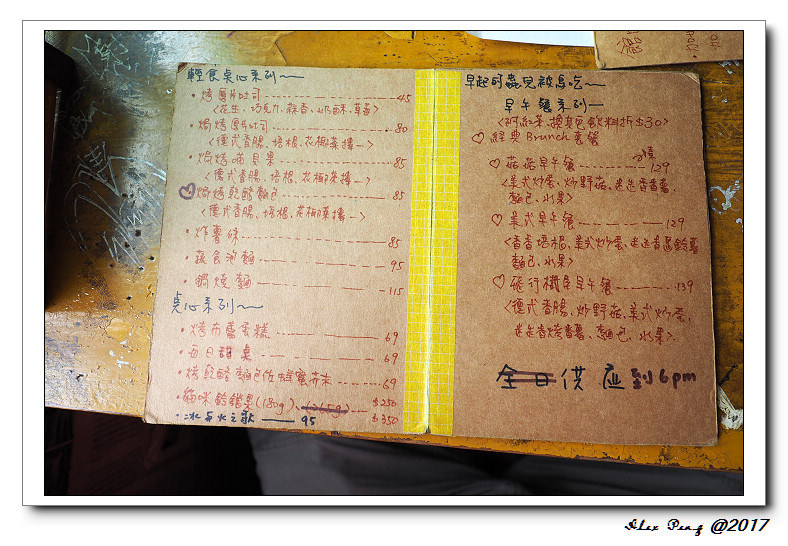 輕食桌心系列～
・烤厚片吐司 45
<花生、巧克力、蒜香、奶酥、草莓>
・焗烤厚片吐司 80
<德式香腸、培根、花椰菜擇一>
・焗烤喵貝果 85
<德式香腸、培根、花椰菜擇一>
♡焗烤乾酪麵包 85
<德式香腸、培根、花椰菜擇一>
・炸薯條 85
・蔬食泡麵 95
・鍋燒麵 115
桌心系列～
・烤布蕾蛋糕 69
・每日甜桌 69
・烤乾酪麵包佐蜂蜜芥末 69
・貓咪鈴鐺果(180g)、(365g) $250
・冰与火之歌 95 $350
早起的蟲兒被鳥吃～
早午餐系列—
<附紅茶、換其他飲料折$30>
♡經典Brunch套餐
♡菇菇早午餐 129
<美式炒蛋、炒野菇、迷迭香香薯、
麵包、水果>
♡美式早午餐 129
<香香培根、美式炒蛋、迷迭香馬鈴薯
麵包、水果>
♡飛行機長早午餐 139
<德式香腸、炒野菇、美式炒蛋、
迷迭香烤番薯、麵包、水果>
全日供應到6pm
Alex Peng @2017